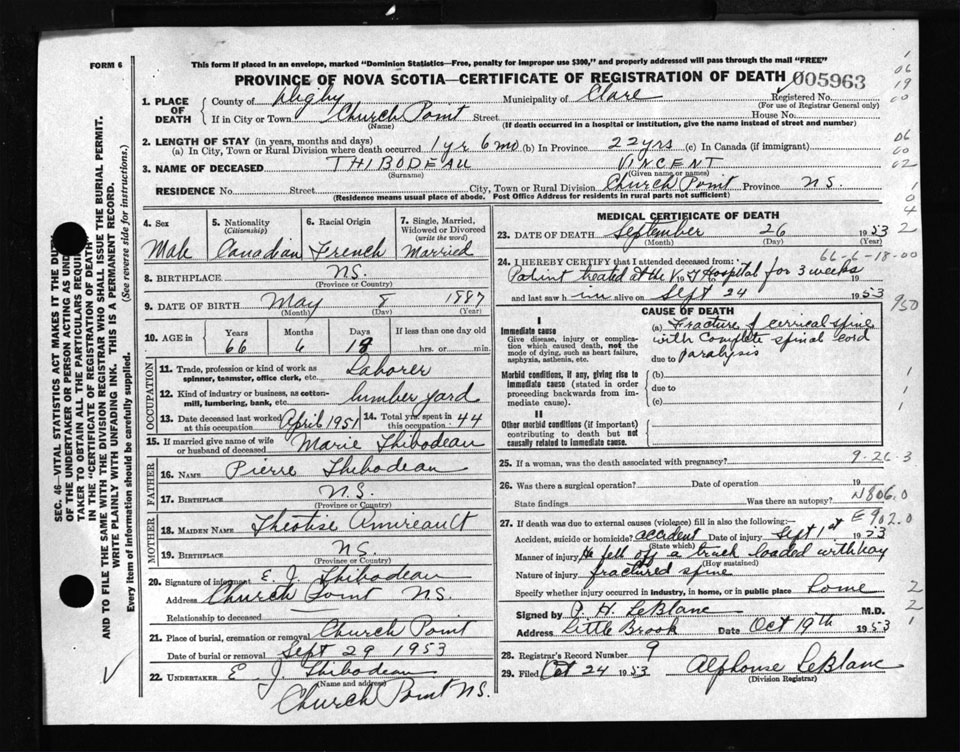 FORM 6
This form if placed in an envelope, marked "Dominion Statistics—Free, penalty for improper use $300," and properly addressed will pass through the mail "FREE"
PROVINCE OF NOVA SCOTIA—CERTIFICATE OF REGISTRATION OF DEATH
005963
1. PLACE OF DEATH
County of Digby Municipality of Clare Registered No.
(For use of Registrar General only)
If in City or Town Church Point Street House No.
(Name) (If death occurred in a hospital or institution, give the name instead of street and number)
2. LENGTH OF STAY (in years, months and days)
(a) In City, Town or Rural Division where death occurred 1 yr 6 mo (b) In Province 22 yrs (c) In Canada (if immigrant)
3. NAME OF DECEASED THIBODEAU VINCENT
(Surname) (Given name or names)
RESIDENCE No. Street City, Town or Rural Division Church Point Province N.S.
(Residence means usual place of abode. Post Office Address for residents in rural parts not sufficient)
4. Sex Male
5. Nationality (Citizenship) Canadian
6. Racial Origin French
7. Single, Married, Widowed or Divorced (write the word) Married
8. BIRTHPLACE N.S.
(Province or Country)
9. DATE OF BIRTH May 8 1887
(Month) (Day) (Year)
10. AGE in Years Months Days If less than one day
66 18 hrs. or min.
OCCUPATION
11. Trade, profession or kind of work as spinner, teamster, office clerk, etc. Laborer
12. Kind of industry or business, as cotton-mill, lumbering, bank, etc. lumber yard
13. Date deceased last worked at this occupation April 1951
14. Total yrs. spent in this occupation 44
15. If married give name of wife or husband of deceased Marie Thibodeau
FATHER
16. NAME Pierre Thibodeau
17. BIRTHPLACE N.S.
(Province or Country)
MOTHER
18. MAIDEN NAME Amireault
19. BIRTHPLACE N.S.
(Province or Country)
20. Signature of informant E. J. Thibodeau
Address Church Point N.S.
Relationship to deceased
21. Place of burial, cremation or removal Church Point
Date of burial or removal Sept 29 1953
22. UNDERTAKER E. J. Thibodeau
(Name and address)
Church Point N.S.
MEDICAL CERTIFICATE OF DEATH
23. DATE OF DEATH September 26 1953
(Month) (Day) (Year)
66-6-18-00
24. I HEREBY CERTIFY that I attended deceased from:
Patient treated at the Hospital for 3 weeks 19
and last saw him alive on Sept 24 1953
CAUSE OF DEATH
I
Immediate cause
Give disease, injury or complication which caused death, not the mode of dying, such as heart failure, asphyxia, asthenia, etc.
(a) Fracture of cervical spine
with complete spinal cord
due to paralysis
Morbid conditions, if any, giving rise to immediate cause (stated in order proceeding backwards from immediate cause).
(b)
due to
(c)
II
Other morbid conditions (if important) contributing to death but not causally related to immediate cause.
25. If a woman, was the death associated with pregnancy? 9-26-3
26. Was there a surgical operation? Date of operation 19
State findings Was there an autopsy?
N806.0
27. If death was due to external causes (violence) fill in also the following:— E902.0
Accident, suicide or homicide? accident Date of injury Sept 1st 1953
(State which)
Manner of injury He fell off a truck loaded with hay
(How sustained)
Nature of injury fractured spine
Specify whether injury occurred in industry, in home, or in public place home
Signed by P. H. LeBlanc M.D.
Address Little Brook Date Oct 19th 1953
28. Registrar's Record Number 9
29. Filed Oct 24 1953 Alphonse LeBlanc
(Division Registrar)
SEC. 46—VITAL STATISTICS ACT MAKES IT THE
OF THE UNDERTAKER OR PERSON ACTING AS
TAKER TO OBTAIN ALL THE PARTICULARS
IN THE "CERTIFICATE OF REGISTRATION OF DEATH"
AND TO FILE THE SAME WITH THE DIVISION REGISTRAR WHO SHALL ISSUE THE BURIAL PERMIT.
WRITE PLAINLY WITH UNFADING INK. THIS IS A PERMANENT RECORD.
Every item of information should be carefully supplied. (See reverse side for instructions.)